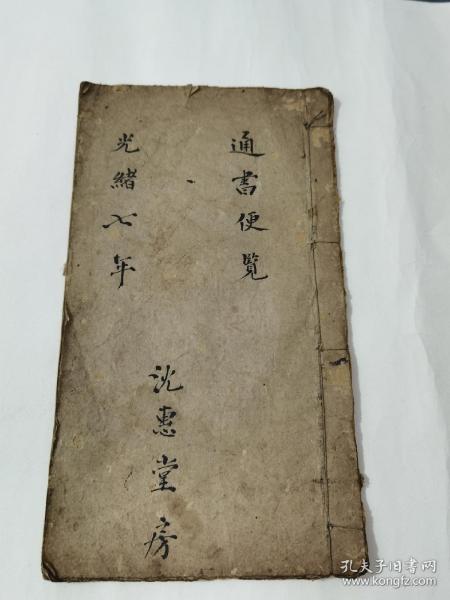 通書便覧
光緒七年
沈惠堂房
孔夫子旧书网
www.kongfz.com